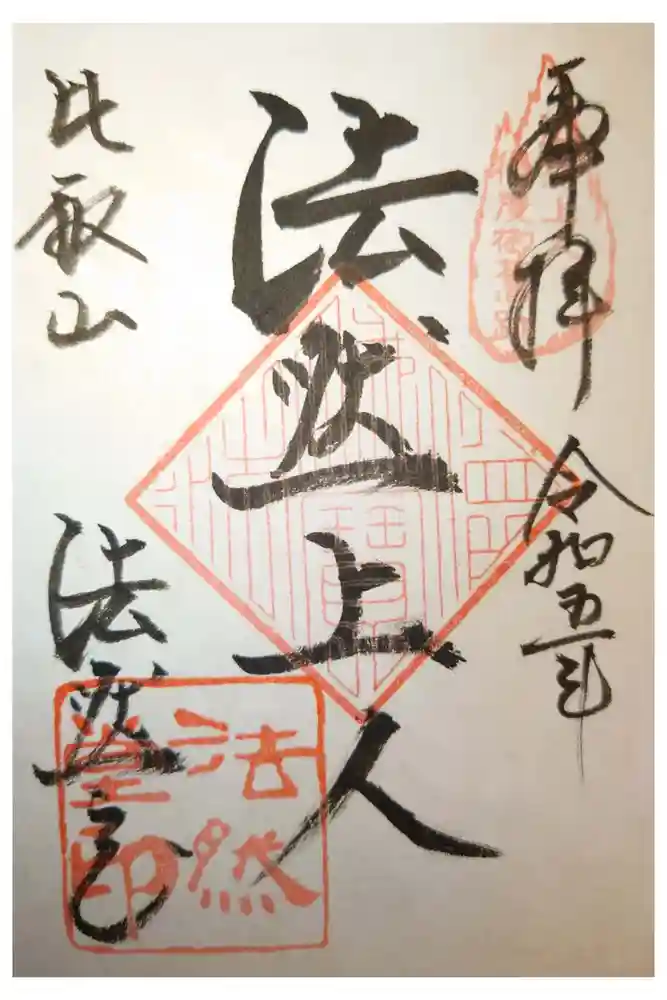 奉拝 令和五年
法然上人
比叡山 法然堂
法然
堂印